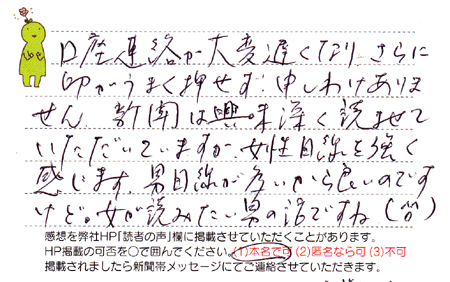 口座連絡が大変遅くなり、さらに
印がうまく押せず、申しわけありま
せん。新聞は興味深く読ませて
いただいていますが、女性目線を強く
感じます。男目線が多いから良いのです
けど。女が読みたい男の話ですね(笑)
感想を弊社HP「読者の声」欄に掲載させていただくことがあります。
HP掲載の可否を○で囲んでください。(1)本名で可 (2)匿名なら可 (3)不可
掲載されましたら新聞帯メッセージにてご連絡させていただきます。